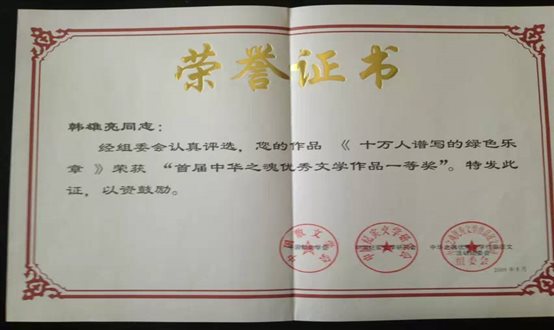 荣誉证书
韩雄亮同志：
经组委会认真评选，您的作品 《 十万人谱写的绿色乐
章 》荣获 “首届中华之魂优秀文学作品一等奖”。特发此
证，以资鼓励。